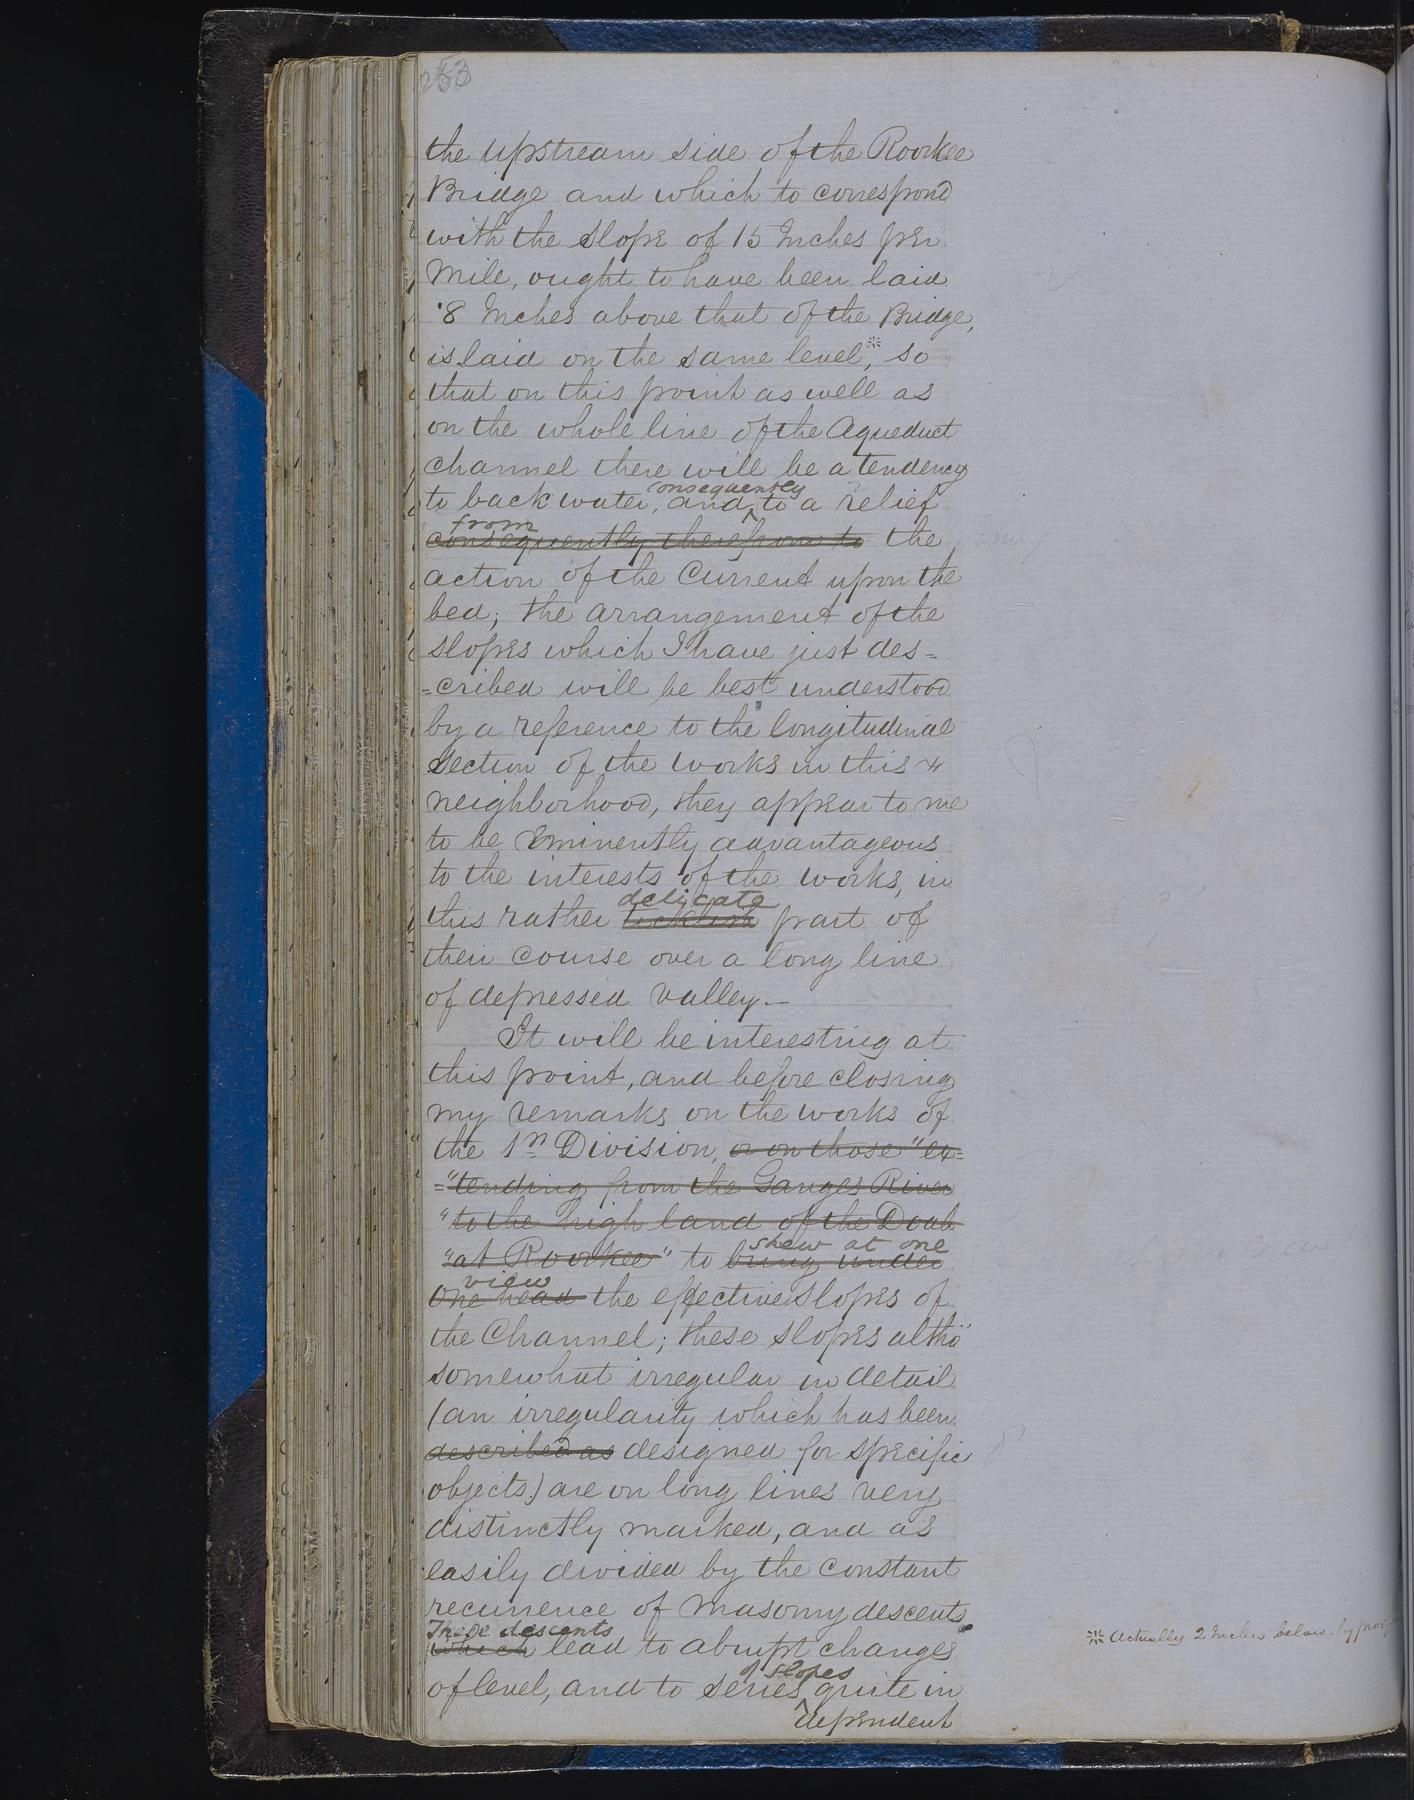 263
the upstream side of the Roorkee
Bridge and which to correspond
with the slope of 15 Inches per
Mile, ought to have been laid
'8 Inches above that of the Bridge,
is laid on the same level,※ so
that on this point as well as
on the whole line of the Aqueduct
channel there will be a tendency
consequently
to back water, and ‸ to a relief
from
consequently therefrom to the
action of the Current upon the
bed; the arrangement of the
slopes which I have just des=
=cribed will be best understood
by a reference to the longitudinal
section of the works in this
neighborhood, they appear to me
to be Eminently advantageous
to the interests of the works, in
delicate
this rather ticklish part of
their course over a long line
of depressed valley.—
It will be interesting at
this point, and before closing
my remarks on the works of
the 1st Division, or on those "ex=
="tending from the Ganges River
"to the high land of the Doab
shew at one
"at Roorkee" to bring under
view
One head the effective slopes of
the Channel; these slopes altho'
somewhat irregular in detail
(an irregularity which has been
described as designed for specific
objects) are on long lines very
distinctly marked, and as
easily divided by the constant
recurrence of masonry descents
These descents
which lead to abrupt changes
of slopes
of level, and to series ‸ quite in
dependent
※ Actually 2 Inches below. by